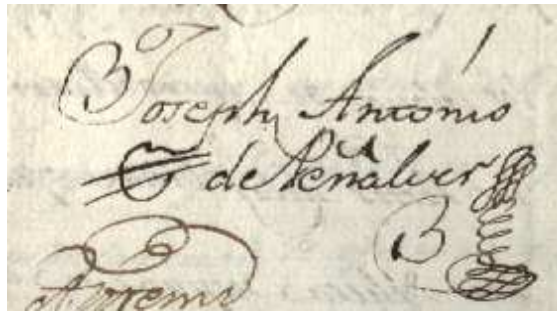 Joseph Antonio
de Peñalver